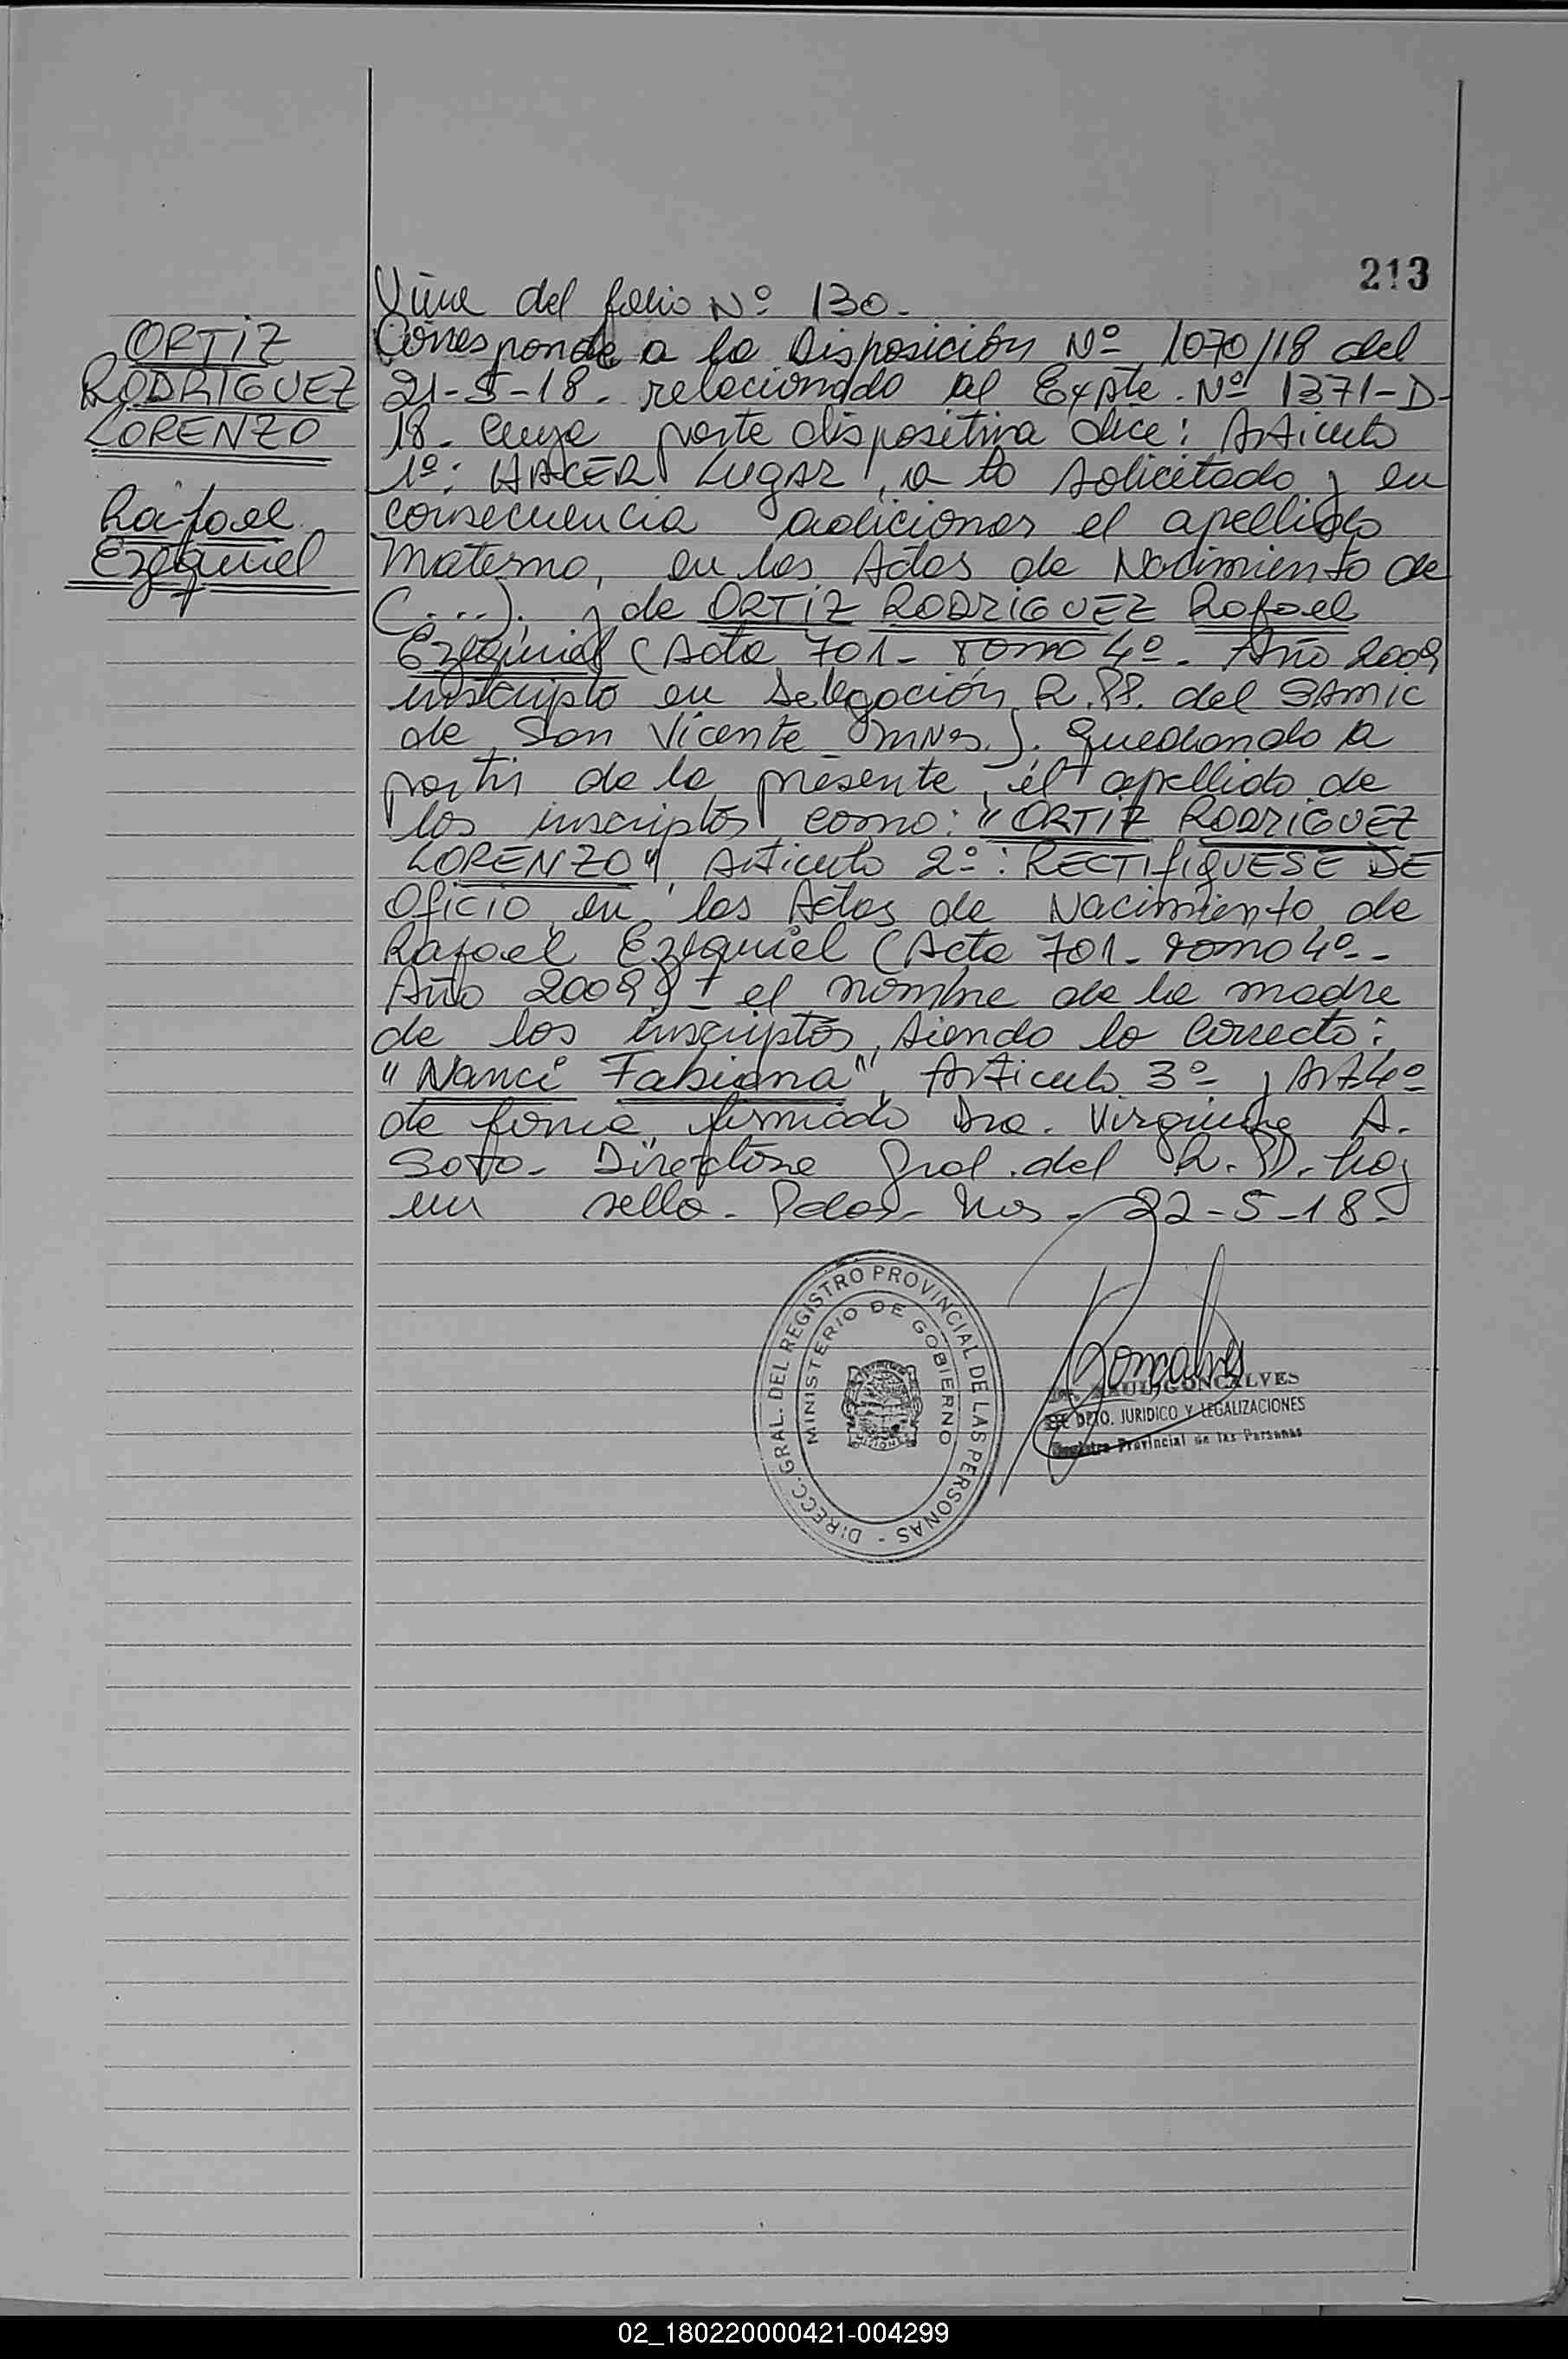 213
Viene del folio Nº 130.
ORTIZ
RODRIGUEZ
LORENZO
Rafael
Ezequiel
Corresponde a la Disposición Nº 1070/18 del
21-5-18. relacionado al Expte. Nº 1371-D-
18. Cuya parte dispositiva dice: Articulo
1º: HACER LUGAR, a lo solicitado y en
consecuencia adicionar el apellido
Materno, en las Actas de Nacimiento de
(....). y de ORTIZ RODRIGUEZ Rafael
Ezequiel (Acta 701- Tomo 4º- Año 2009
inscripto en Delegación R.PP. del SAMIC
de San Vicente Mnes.). Quedando a
partir de la presente, el apellido de
los inscriptos como: "ORTIZ RODRIGUEZ
LORENZO". Articulo 2º: RECTIFIQUESE DE
Oficio en las Actas de Nacimiento de
Rafael Ezequiel (Acta 701- Tomo 4º-
Año 2009) el nombre de la madre
de los inscriptos, siendo lo correcto:
"Nanci Fabiana", Articulo 3º y Art 4º
de forma, firmado Dra. Virginia A.
Soto- Directora Gral. del R.P. hay
un sello- Pdas- Mnes- 22-5-18-
DIRECC. GRAL. DEL REGISTRO PROVINCIAL DE LAS PERSONAS -
MINISTERIO DE GOBIERNO
MISIONES
Goncalves
RAUL GONCALVES
DPTO. JURIDICO Y LEGALIZACIONES
Registro Provincial de las Personas
02_180220000421-004299